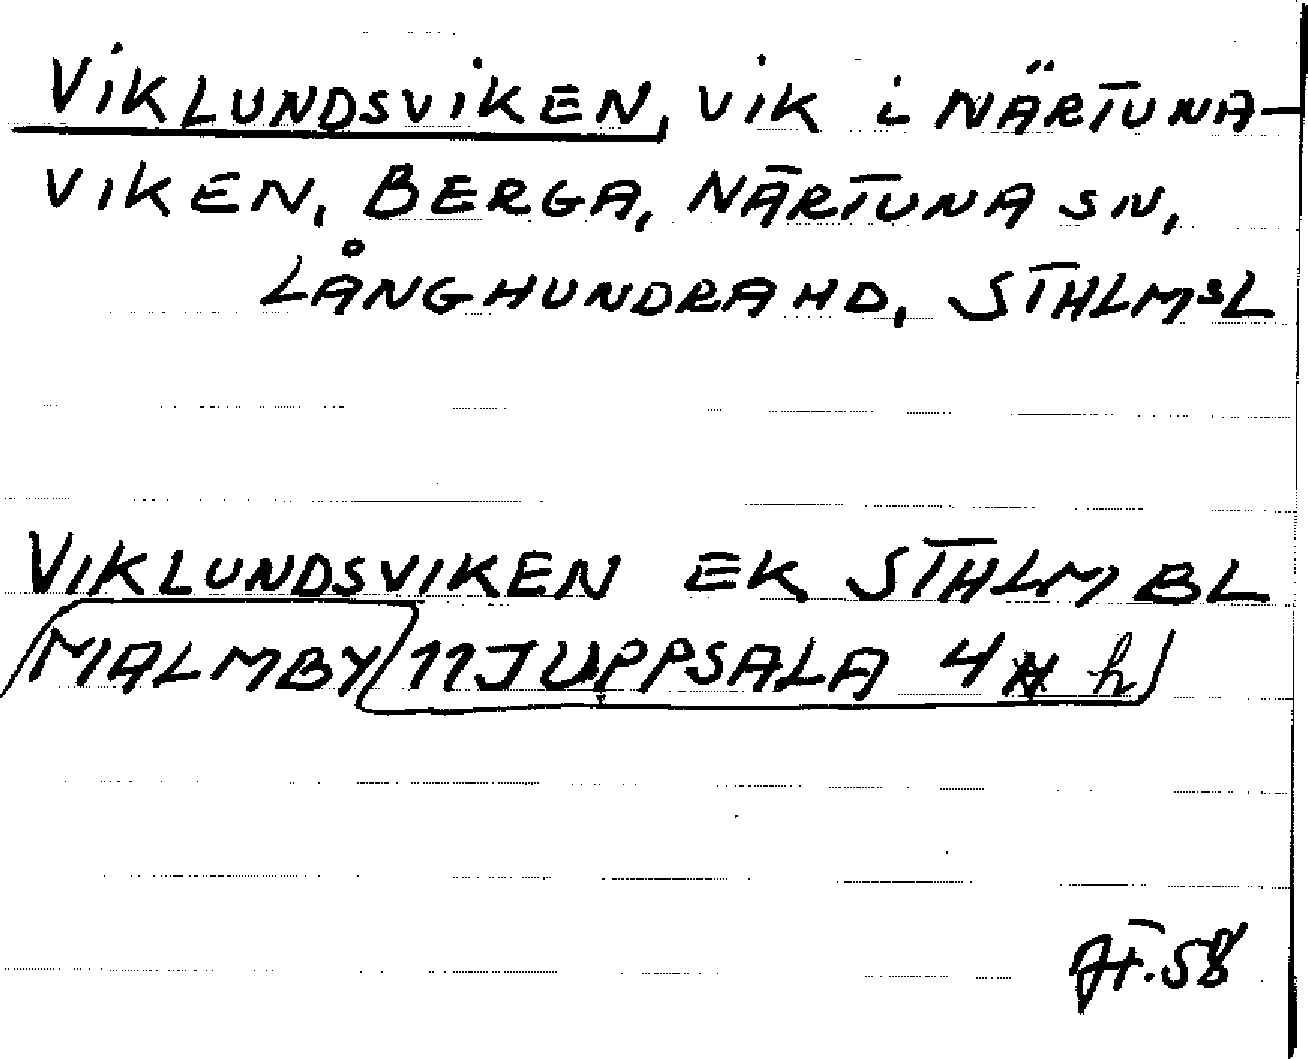 VIKLUNDSVIKEN, VIK i NÄRTUNA-
VIKEN, BERGA, NÄRTUNA SN,
LÅNGHUNDRA HD, STHLMSL
VIKLUNDSVIKEN EK STHLM BL
MALMBY 11J UPPSALA 4 h
58